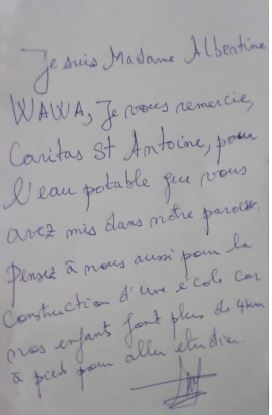 Je suis Madame Albertine
WAWA, Je vous remercie,
Caritas St Antoine, pour
l'eau potable que vous
avez mis dans notre paroisse.
Pensez à nous aussi pour la
Construction d'une école car
nos enfant font plus de 4km
à pied pour aller etudier.